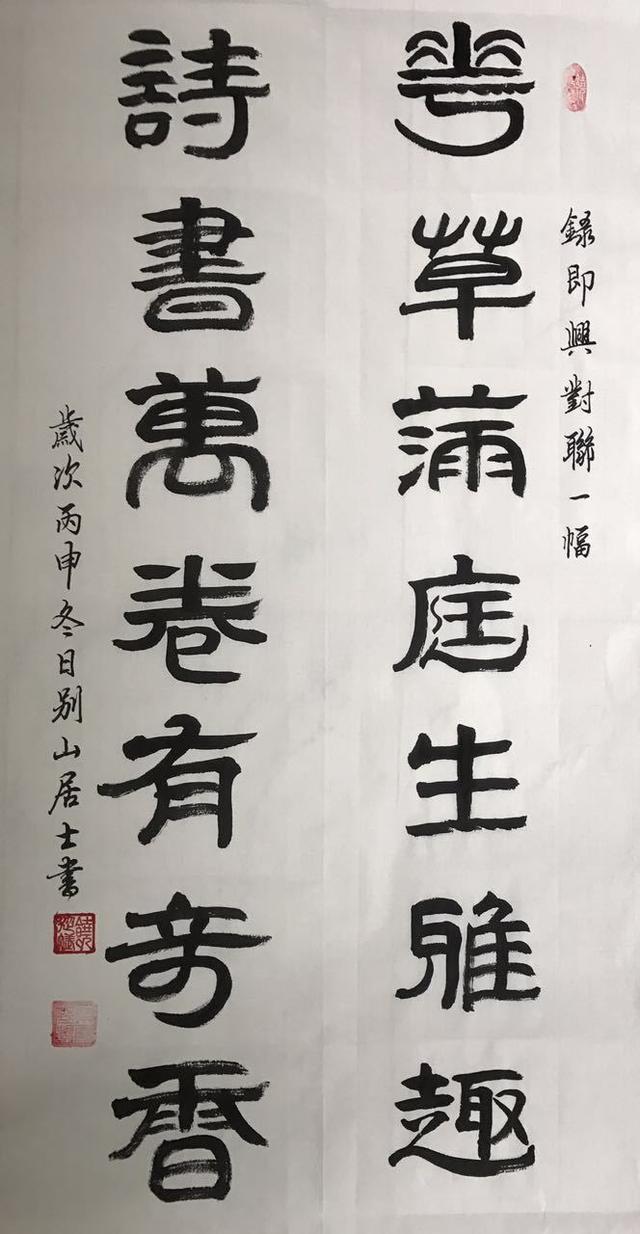 錄即興對聯一幅
花草滿庭生雅趣
詩書萬卷有奇香
歲次丙申冬日别山居士書